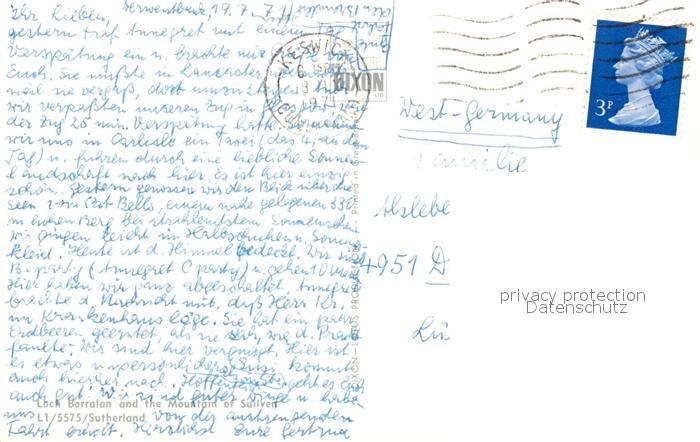 Ihr Lieben, Derwentbank, 19. 7. 71
gestern traf Annegret mit einem Tag
Verspätung ein u. brachte mir
Euch. Sie mußte in Lancaster
weil sie vergaß, dort umzusteigen
wir verpaßten unseren Zug in
der Zug 25 min. Verspätung hatte.
wir uns in Carlisle ein Taxi (das 4. an dem
Tag) u. fuhren durch eine liebliche Sommer
landschaft nach hier. Es ist hier einzig
schön. Gestern genossen wir den Blick über die
Seen von Cat Bells, einem nahe gelegenen 330
m hohen Berg bei strahlendstem Sonnenschein
wir gingen leicht in Halbschuhen u. Sommer
kleid. Heute ist d. Himmel bedeckt. Wir sind
B-party (Annegret C party) u. gehen 10
Hier haben wir ganz abgeschaltet. Annegret
brachte d. Nachricht mit, daß Herr Kr.
im Krankenhaus läge. Sie hat ein paar
Erdbeeren geerntet, als sie
faulte. Wir sind hier vergnügt. Hier ist
es etwas unpersönlicher
auch hierher nach. Hoffentlich geht es Euch
auch gut. Wir sind guter Dinge u. haben
uns von der anstrengenden
Fahrt erholt. Herzlichst Eure Gertrud
KESWICK
19
DIXON
LTD
3P
West-Germany
Familie
Alslebe
4951 D
Lü
privacy protection
Datenschutz
Printed in Great
DIXON-LOTUS PRODUCT
Loch Borralan and the Mountain of Suilven
L1/5575/Sutherland